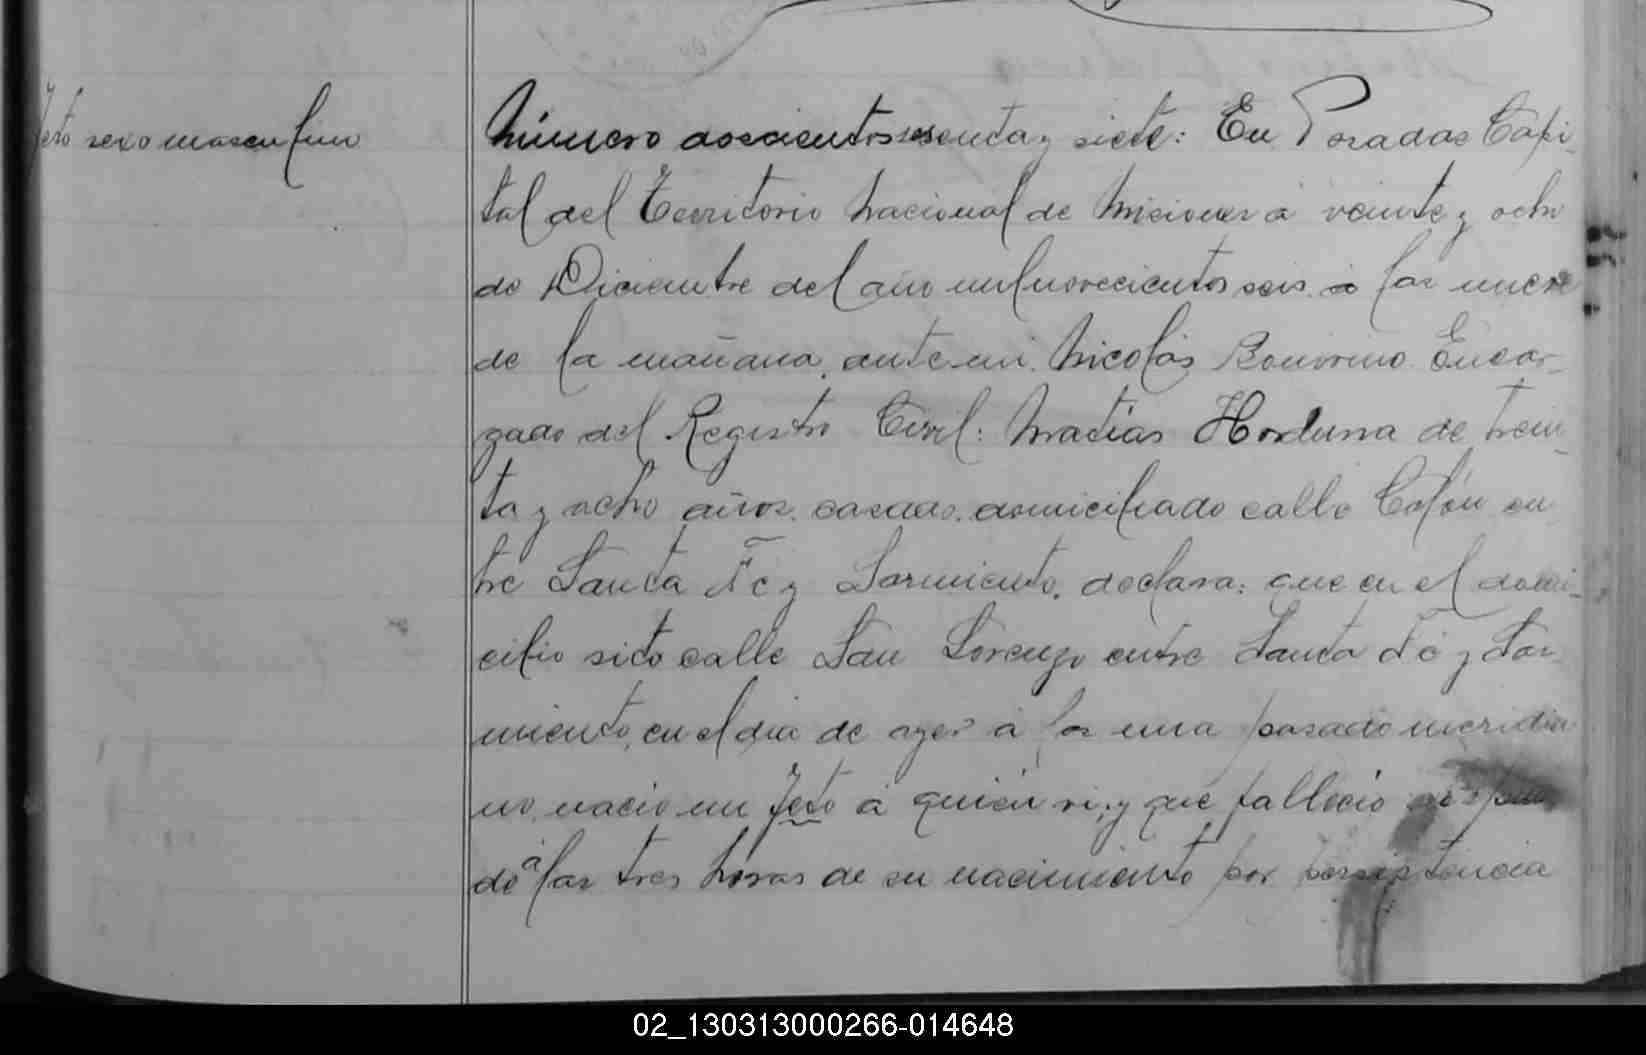 Feto sexo masculino
Número doscientos sesenta y siete: En Posadas Capi-
tal del Territorio Nacional de Misiones á veinte y ocho
de Diciembre del año mil novecientos seis á las nueve
de la mañana, ante mi Nicolás Bonorino Encar-
gado del Registro Civil: Matías Horduna de trein-
ta y ocho años, casado, domiciliado calle Colón en
tre Santa Fé y Sarmiento, declara: que en el domi-
cilio sito calle San Lorenzo entre Santa Fé y Sar
miento, en el dia de ayer á las una pasado meridia
no, nació un feto á quién vi, y que falleció
do á las tres horas de su nacimiento por persistencia
02_130313000266-014648